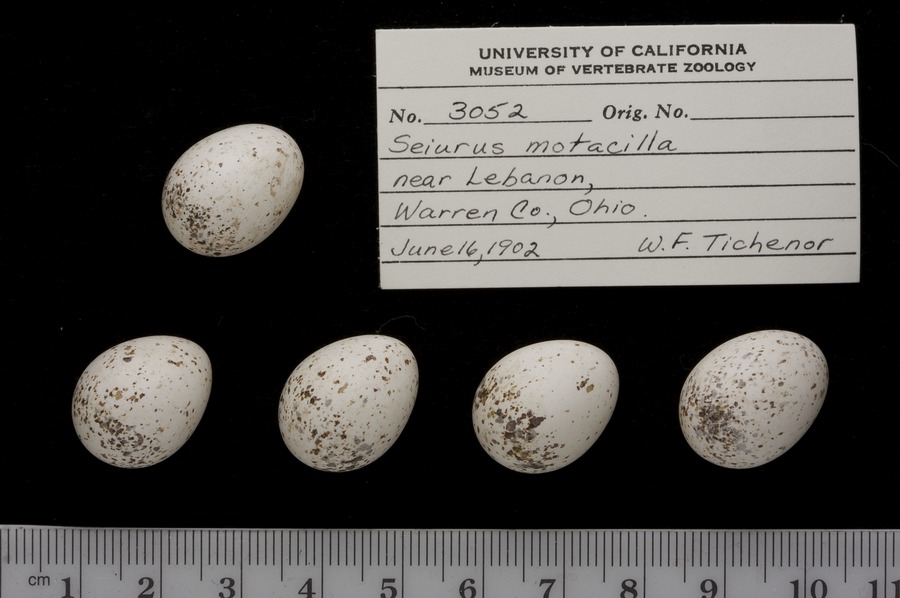 UNIVERSITY OF CALIFORNIA
MUSEUM OF VERTEBRATE ZOOLOGY
No. 3052 Orig. No.
Seiurus motacilla
near Lebanon,
Warren Co., Ohio.
June 16, 1902 W.F. Tichenor
cm 1 2 3 4 5 6 7 8 9 10 11